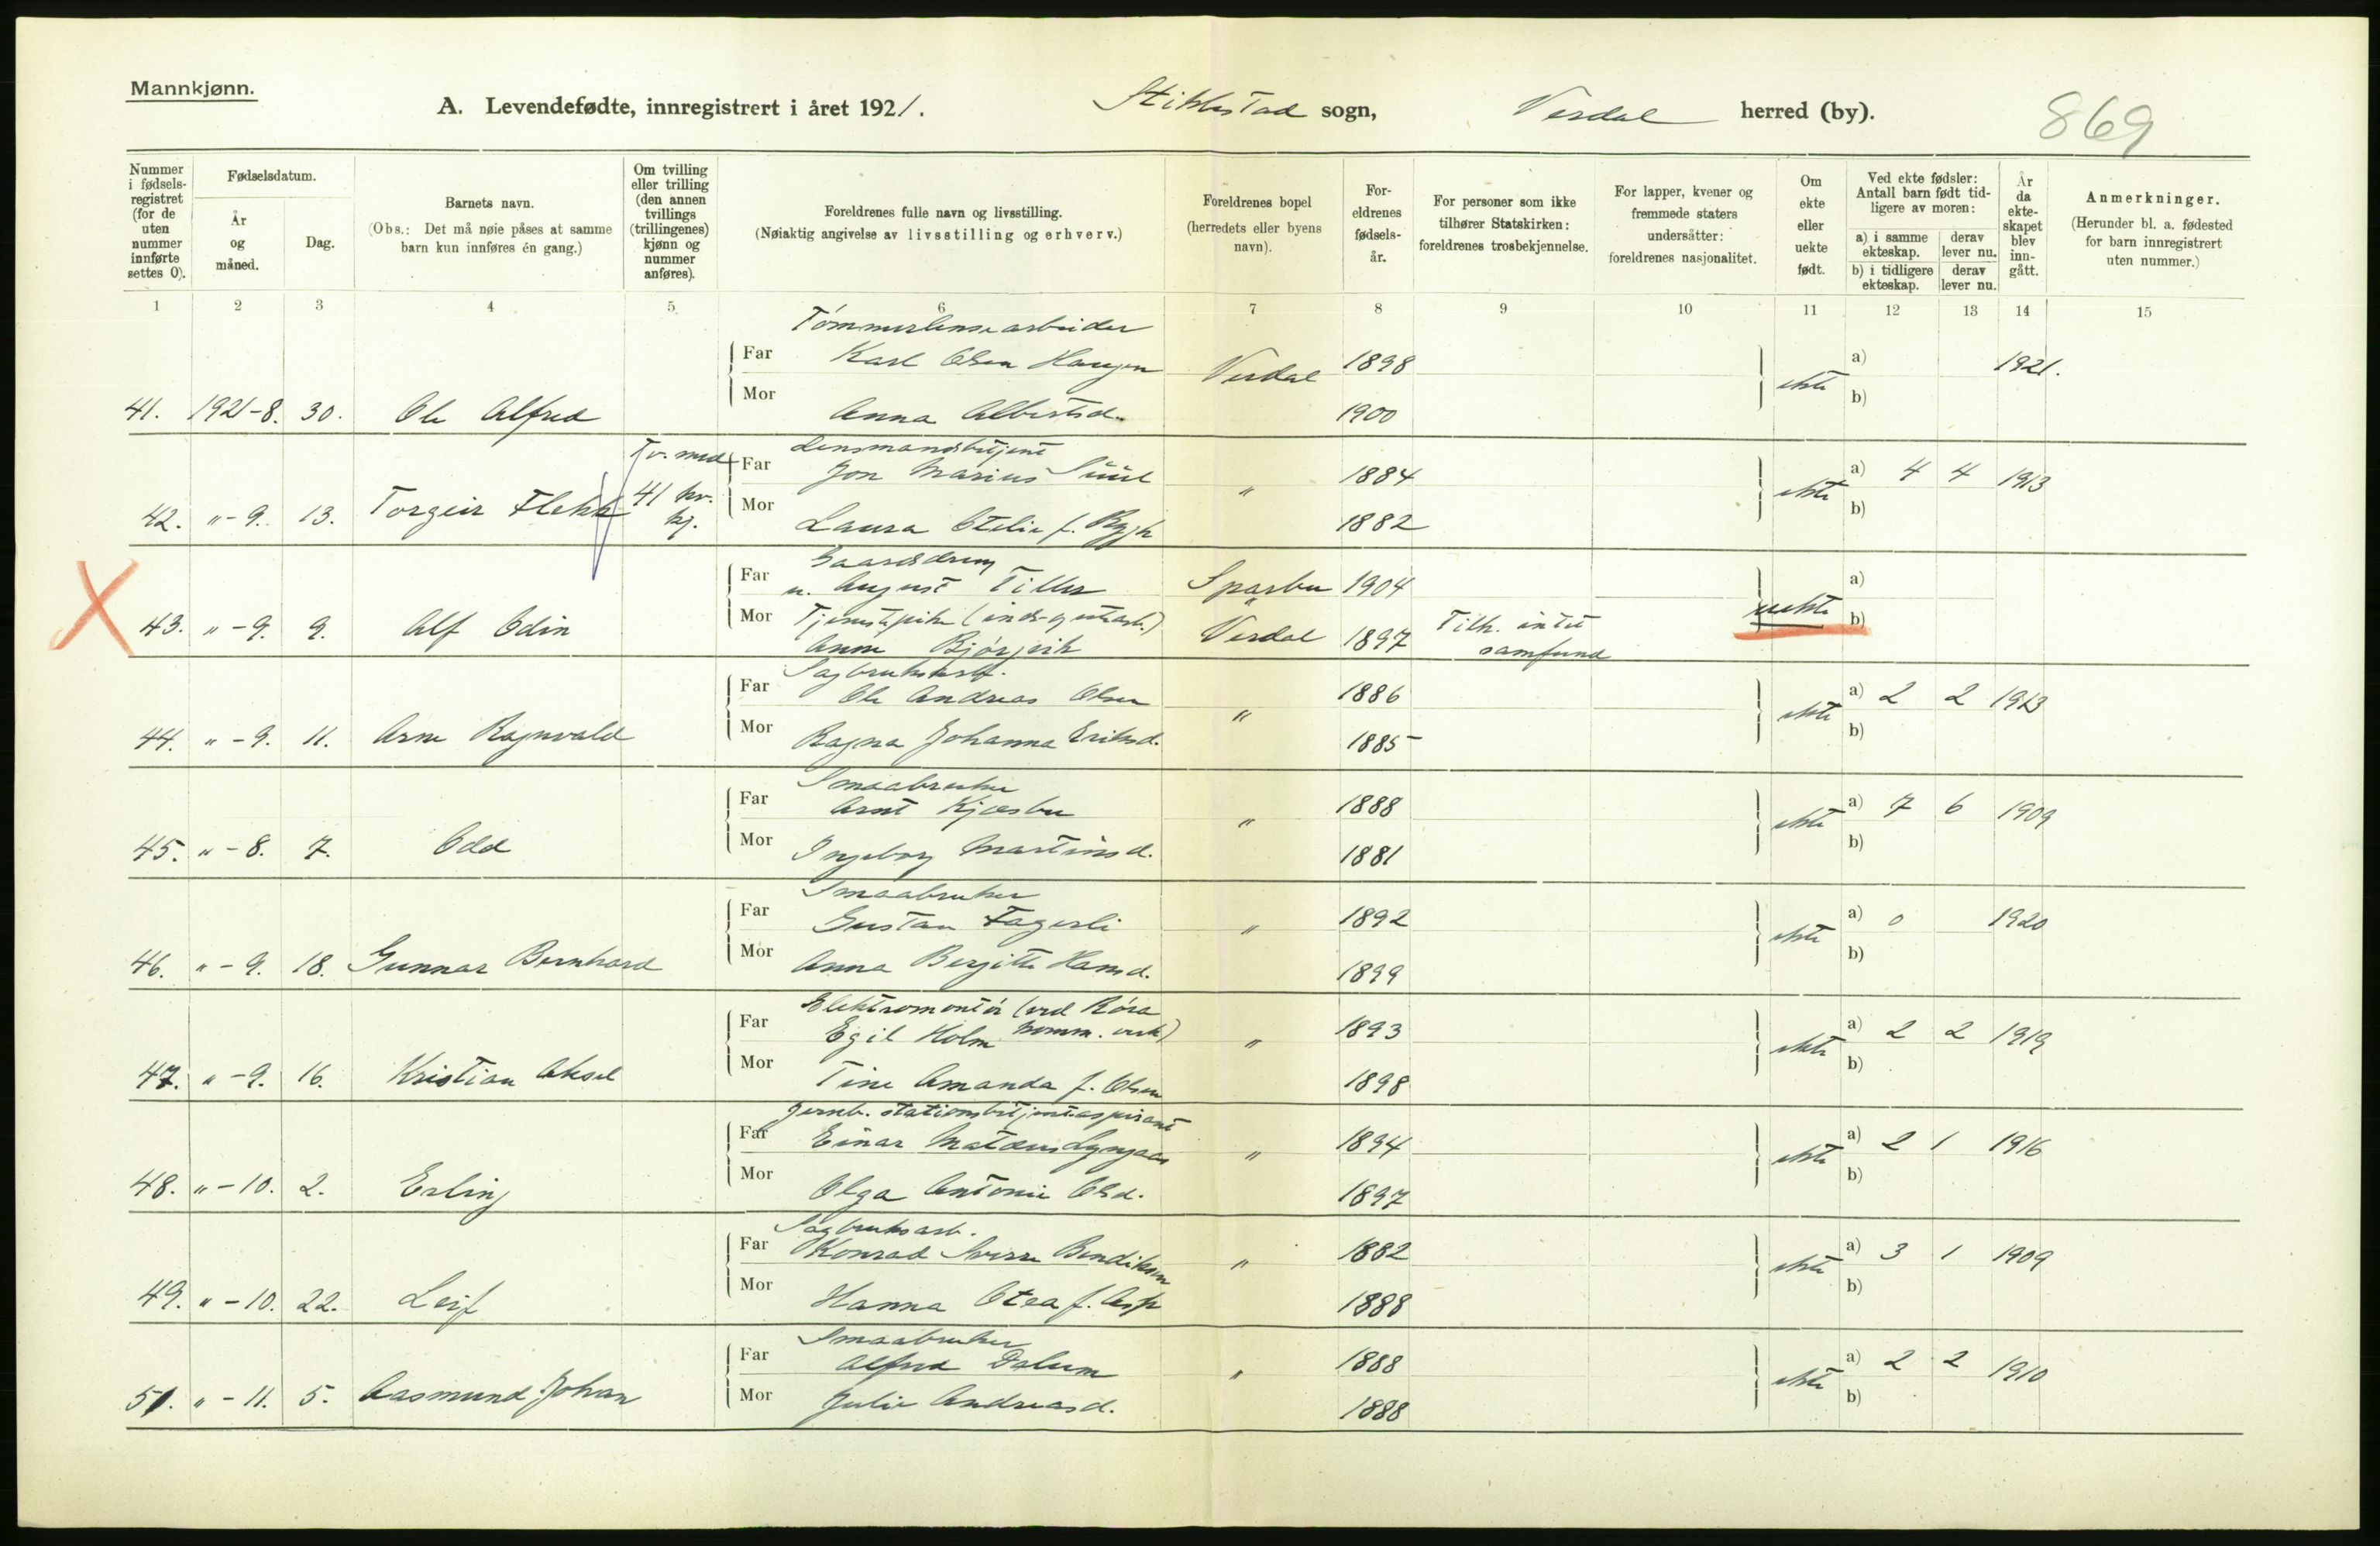 Mannkjønn.
A. Levendefødte, innregistrert i året 1921. Stiklestad sogn, Verdal herred (by). 869
Nummer i fødsels-registret (for de uten nummer innførte settes 0).
Fødselsdatum.
År og måned.
Dag.
Barnets navn.
(Obs.: Det må nøie påses at samme barn kun innføres én gang.)
Om tvilling eller trilling (den annen tvillings (trillingenes) kjønn og nummer anføres).
Foreldrenes fulle navn og livsstilling.
(Nøiaktig angivelse av livsstilling og erhverv.)
Foreldrenes bopel (herredets eller byens navn).
For-eldrenes fødsels-år.
For personer som ikke tilhører Statskirken: foreldrenes trosbekjennelse.
For lapper, kvener og fremmede staters undersåtter: foreldrenes nasjonalitet.
Om ekte eller uekte født.
Ved ekte fødsler: Antall barn født tid-ligere av moren:
a) i samme ekteskap. derav lever nu.
b) i tidligere ekteskap. derav lever nu.
År da ekte-skapet blev inn-gått.
Anmerkninger.
(Herunder bl. a. fødested for barn innregistrert uten nummer.)
1 2 3 4 5 6 7 8 9 10 11 12 13 14 15
Tømmerlensearbeider
Far Karl Olsen Haugen Verdal 1898 ekte a) 1921.
41. 1921-8. 30. Ole Alfred Mor Anna Albertsd. 1900 b)
Tv. med Lensmandsbetjent
Far Jon Marius Süül " 1884 ekte a) 4 4 1913
42. "-9. 13. Torgeir Flekk 41 kv. kj. Mor Laura Otelie f. Rygh 1882 b)
Gaardsdreng
Far u. August Tiller Sparbu 1904 a)
43. "-9. 9. Alf Odin Mor Tjenestepike (inde- og utearb.) Verdal 1897 Tilh. intet samfund uekte b)
Anna Bjørgvik
Sagbruksarb.
Far Ole Andreas Olsen " 1886 ekte a) 2 2 1913
44. "-9. 11. Arne Ragnvald Mor Ragna Johanna Eriksd. 1885 b)
Smaabruker
Far Arnt Kjæsbu " 1888 ekte a) 7 6 1909
45. "-8. 7. Odd Mor Ingeborg Martinsd. 1881 b)
Smaabruker
Far Gustav Fagerli " 1892 ekte a) 0 1920
46. "-9. 18. Gunnar Bernhard Mor Anna Bergitte Hansd. 1899 b)
Elektromontør (ved Røra komm. verk)
Far Egil Holm " 1893 ekte a) 2 2 1919
47. "-9. 16. Kristian Aksel Mor Tine Amanda f. Olsen 1898 b)
Jernb. stationsbetjentaspirant
Far Einar Mateus Lyngaas " 1894 ekte a) 2 1 1916
48. "-10. 2. Erling Mor Olga Antonie Olsd. 1897 b)
Sagbruksarb.
Far Konrad Sverre Bendiksen " 1882 ekte a) 3 1 1909
49. "-10. 22. Leif Mor Hanna Otea f. Asp 1888 b)
Smaabruker
Far Alfred Dalum " 1888 ekte a) 2 2 1910
51. "-11. 5. Aasmund Johan Mor Julie Andreasd. 1888 b)